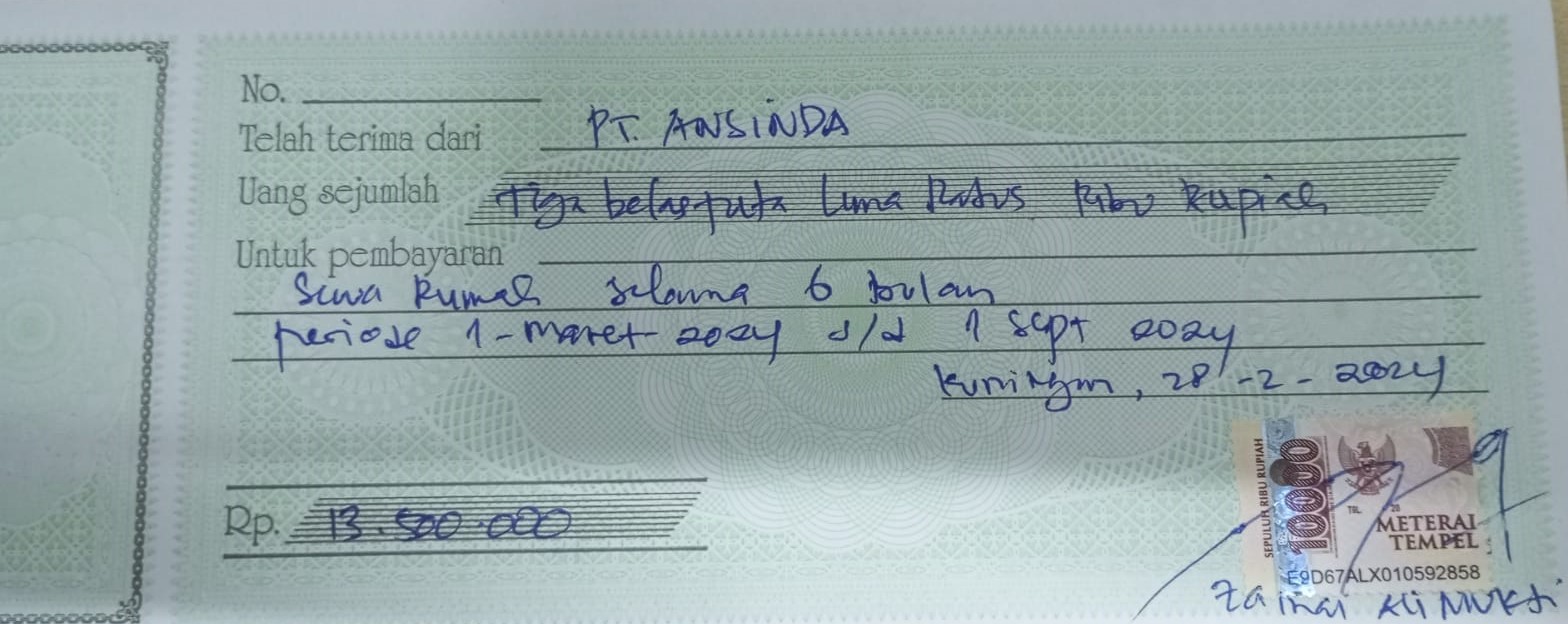 No.
Telah terima dari PT. ANSINDA
Uang sejumlah Tiga belas juta lima Ratus Ribu Rupiah
Untuk pembayaran
Sewa Rumah selama 6 bulan
periode 1-Maret-2024 s/d 1 Sept 2024
Kuningan, 28-2-2024
Rp. 13.500.000
SEPULUH RIBU RUPIAH
10000
TGL. 20
METERAI
TEMPEL
E9D67ALX010592858
Zainal Ali Mukti